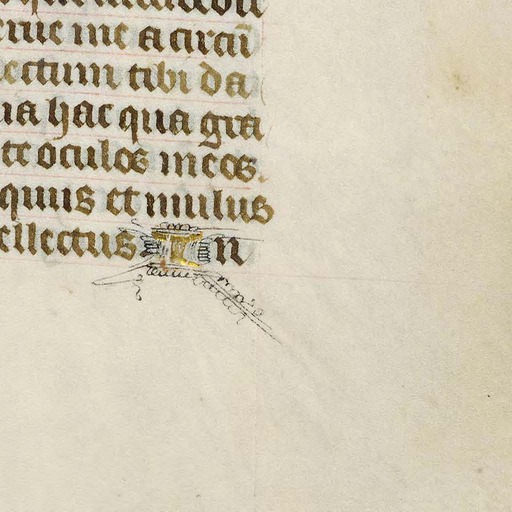 me a circū
ectum tibi da
ia hac qua gra
oculos meos.
quus et mulus
ellectus. In